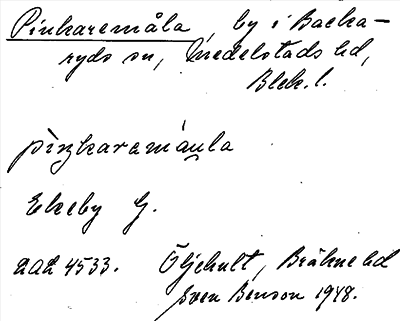 Pinkaremåla, by i Backa-
ryds sn, Medelstads hd,
Blek. l.
pìŋkaramá̀u̯la
Ekeby G.
aad 4533. Öljehult, Bräkne hd
Sven Benson 1948.